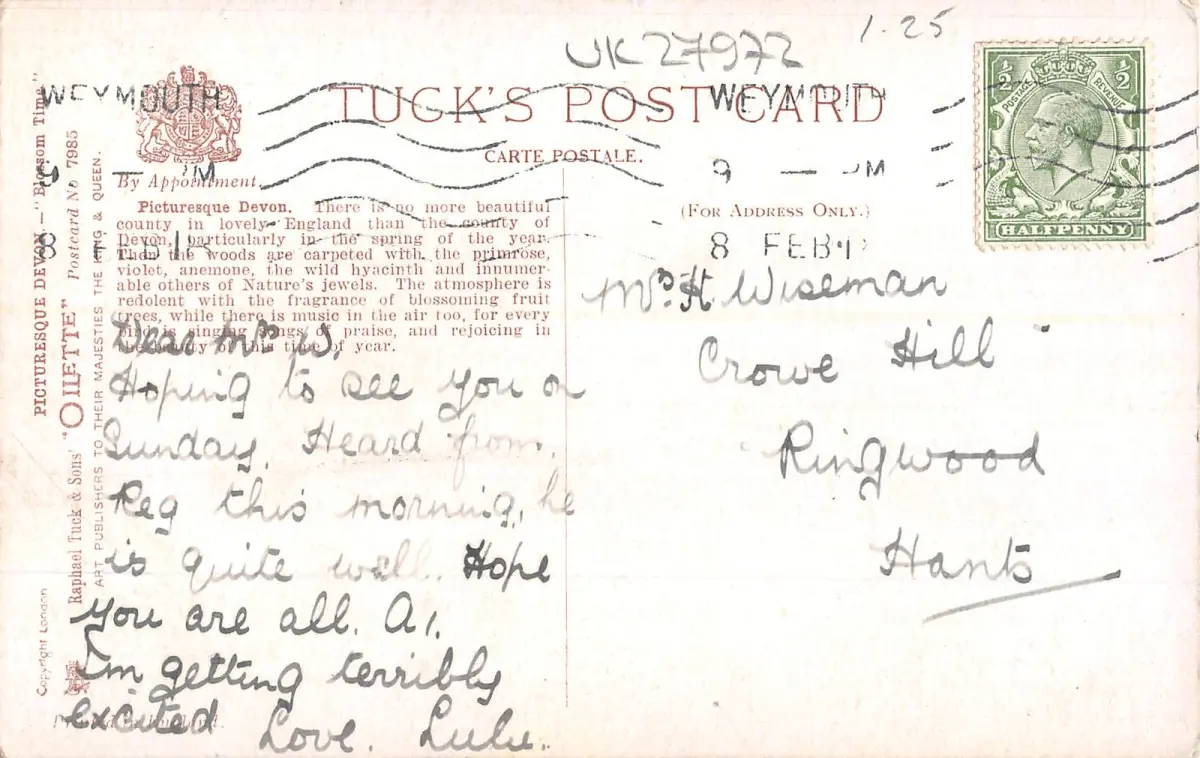 UK27972
1.25
WEYMOUTH
WEYMOUTH
TUCK'S POST CARD
CARTE POSTALE.
9 — PM
8 FEB 1
By Appointment.
(FOR ADDRESS ONLY.)
½ ½
POSTAGE REVENUE
HALFPENNY
Picturesque Devon. There is no more beautiful
county in lovely England than the county of
Devon, particularly in the spring of the year.
Then the woods are carpeted with the primrose,
violet, anemone, the wild hyacinth and innumer-
able others of Nature's jewels. The atmosphere is
redolent with the fragrance of blossoming fruit
trees, while there is music in the air too, for every
bird is singing songs of praise, and rejoicing in
the beauty of this time of year.
Dear Mrs W.
Hoping to see you on
Sunday. Heard from
Reg this morning, he
is quite well. Hope
you are all. A1.
I'm getting terribly
excited Love. Lulu.
Mrs H. Wiseman
Crowe Hill
Ringwood
Hants
PICTURESQUE DEVON.—"Blossom Time"
Raphael Tuck & Sons' "OILETTE" Postcard No 7985
ART PUBLISHERS TO THEIR MAJESTIES THE KING & QUEEN.
Copyright London